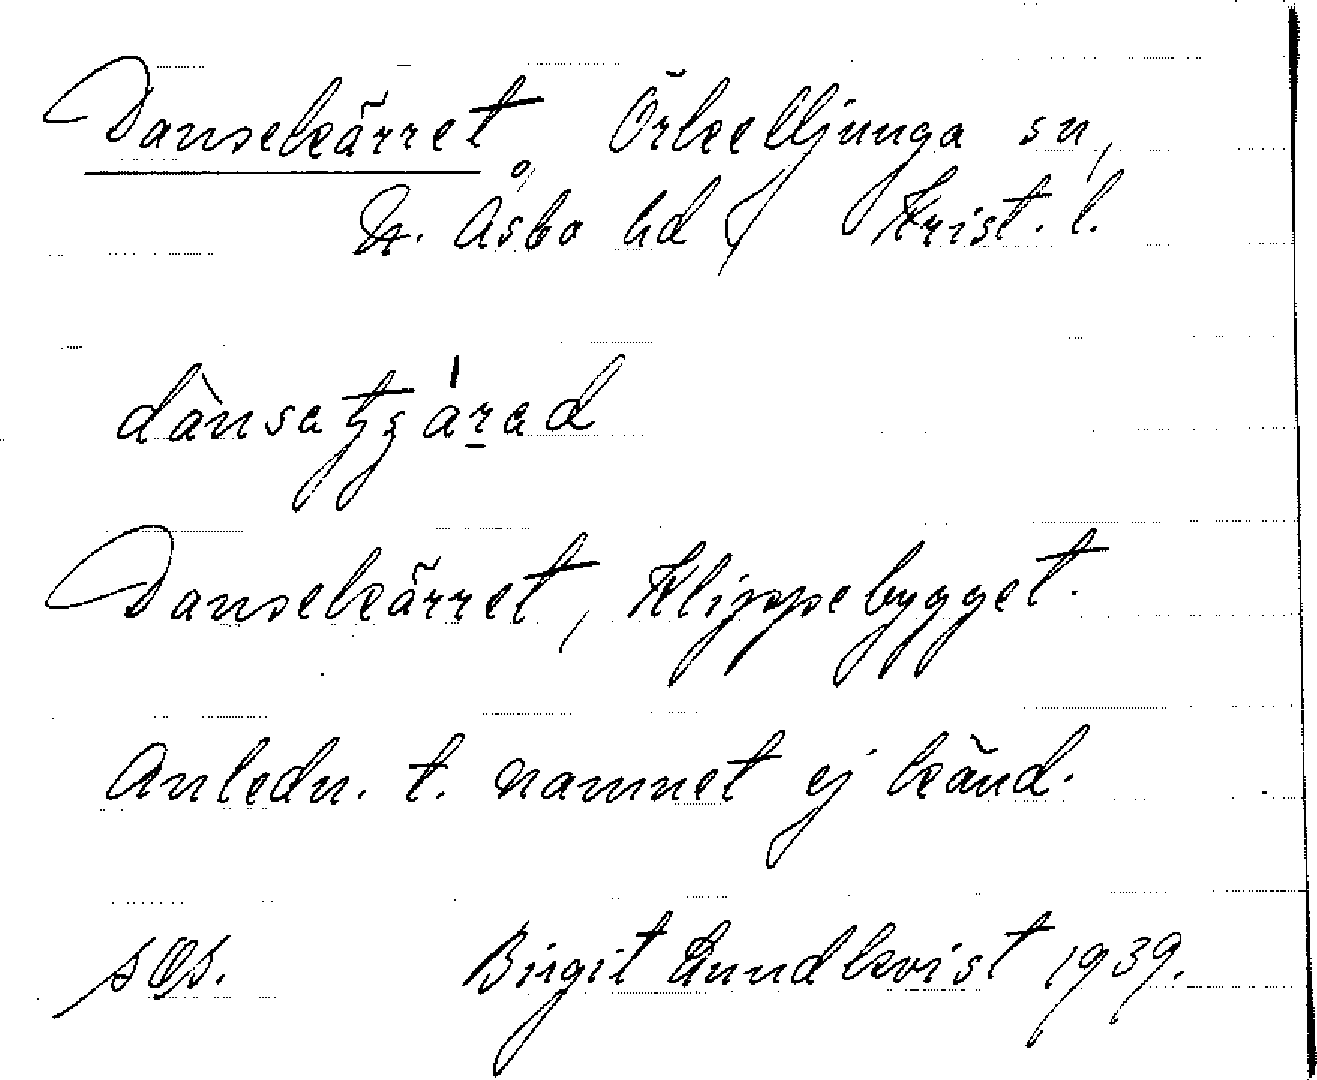 Dansekärret Örkelljunga sn,
N. Åsbo hd, Krist. l.
dànsatjśárad
Dansekärret, Klippebygget.
Anledn. t. namnet ej känd.
Birgit Lundkvist 1939.